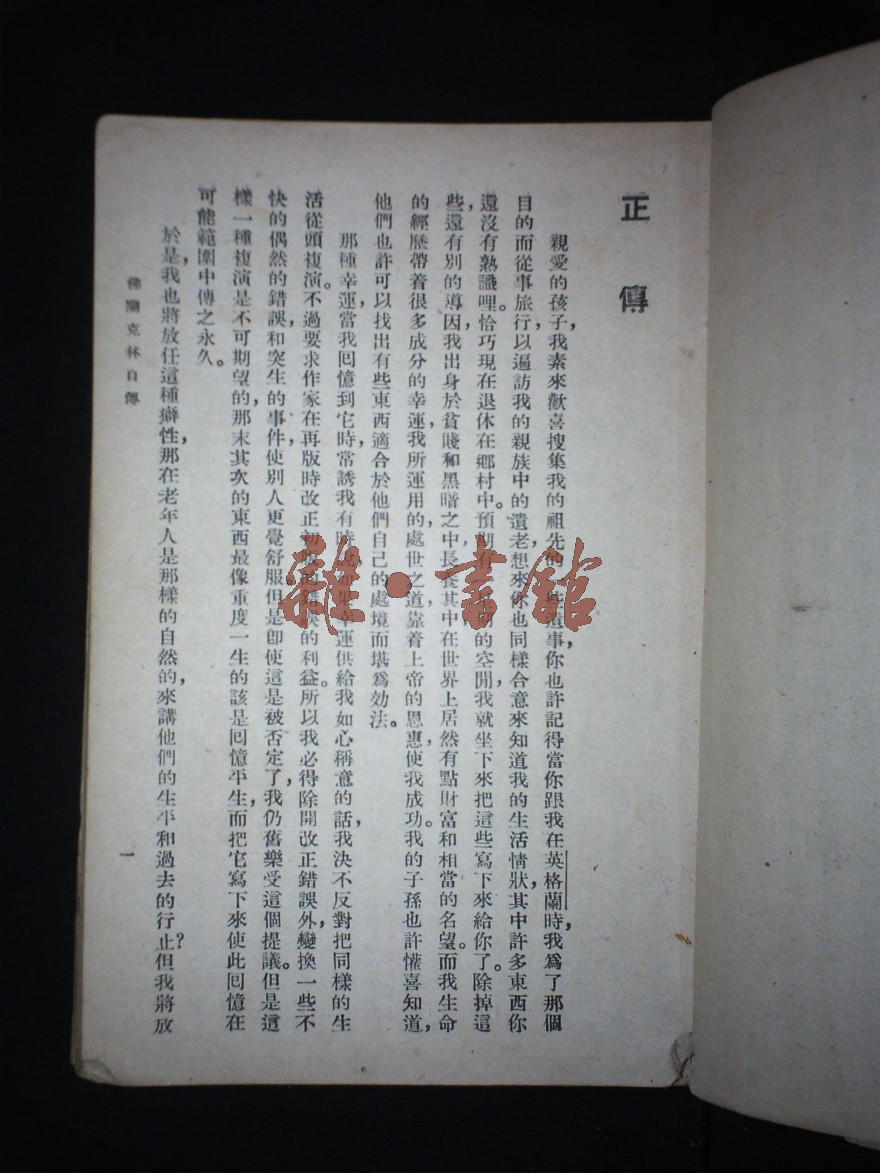 正傳
親愛的孩子，我素來歡喜搜集我的祖先的一些遺事，你也許記得當你跟我在英格蘭時，我爲了那個
目的而從事旅行，以遍訪我的親族中的遺老，想來你也同樣合意來知道我的生活情狀，其中許多東西你
還沒有熟識哩。恰巧現在退休在鄉村中。預期有一星期的空閒，我就坐下來把這些寫下來給你了。除掉這
些，還有別的導因，我出身於貧賤和黑暗之中，長養其中，在世界上居然有點財富和相當的名望。而我生命
的經歷帶着很多成分的幸運，我所運用的，處世之道，靠着上帝的恩惠，使我成功。我的子孫也許懽喜知道，
他們也許可以找出有些東西適合於他們自己的處境而堪爲効法。
那種幸運，當我囘憶到它時，常誘我有時說，如果幸運供給我如心稱意的話，我決不反對把同樣的生
活從頭複演。不過要求作家在再版時改正初版的錯誤的利益。所以我必得除開改正錯誤外，變換一些不
快的偶然的錯誤，和突生的事件，使別人更覺舒服。但是卽使這是被否定了，我仍舊樂受這個提議。但是這
樣一種複演是不可期望的，那末其次的東西最像重度一生的，該是囘憶平生，而把它寫下來使此囘憶在
可能範圍中傳之永久。
於是，我也將放任這種癖性，那在老年人是那樣的自然的，來講他們的生平和過去的行止？但我將放
佛蘭克林自傳
一
雜·書館